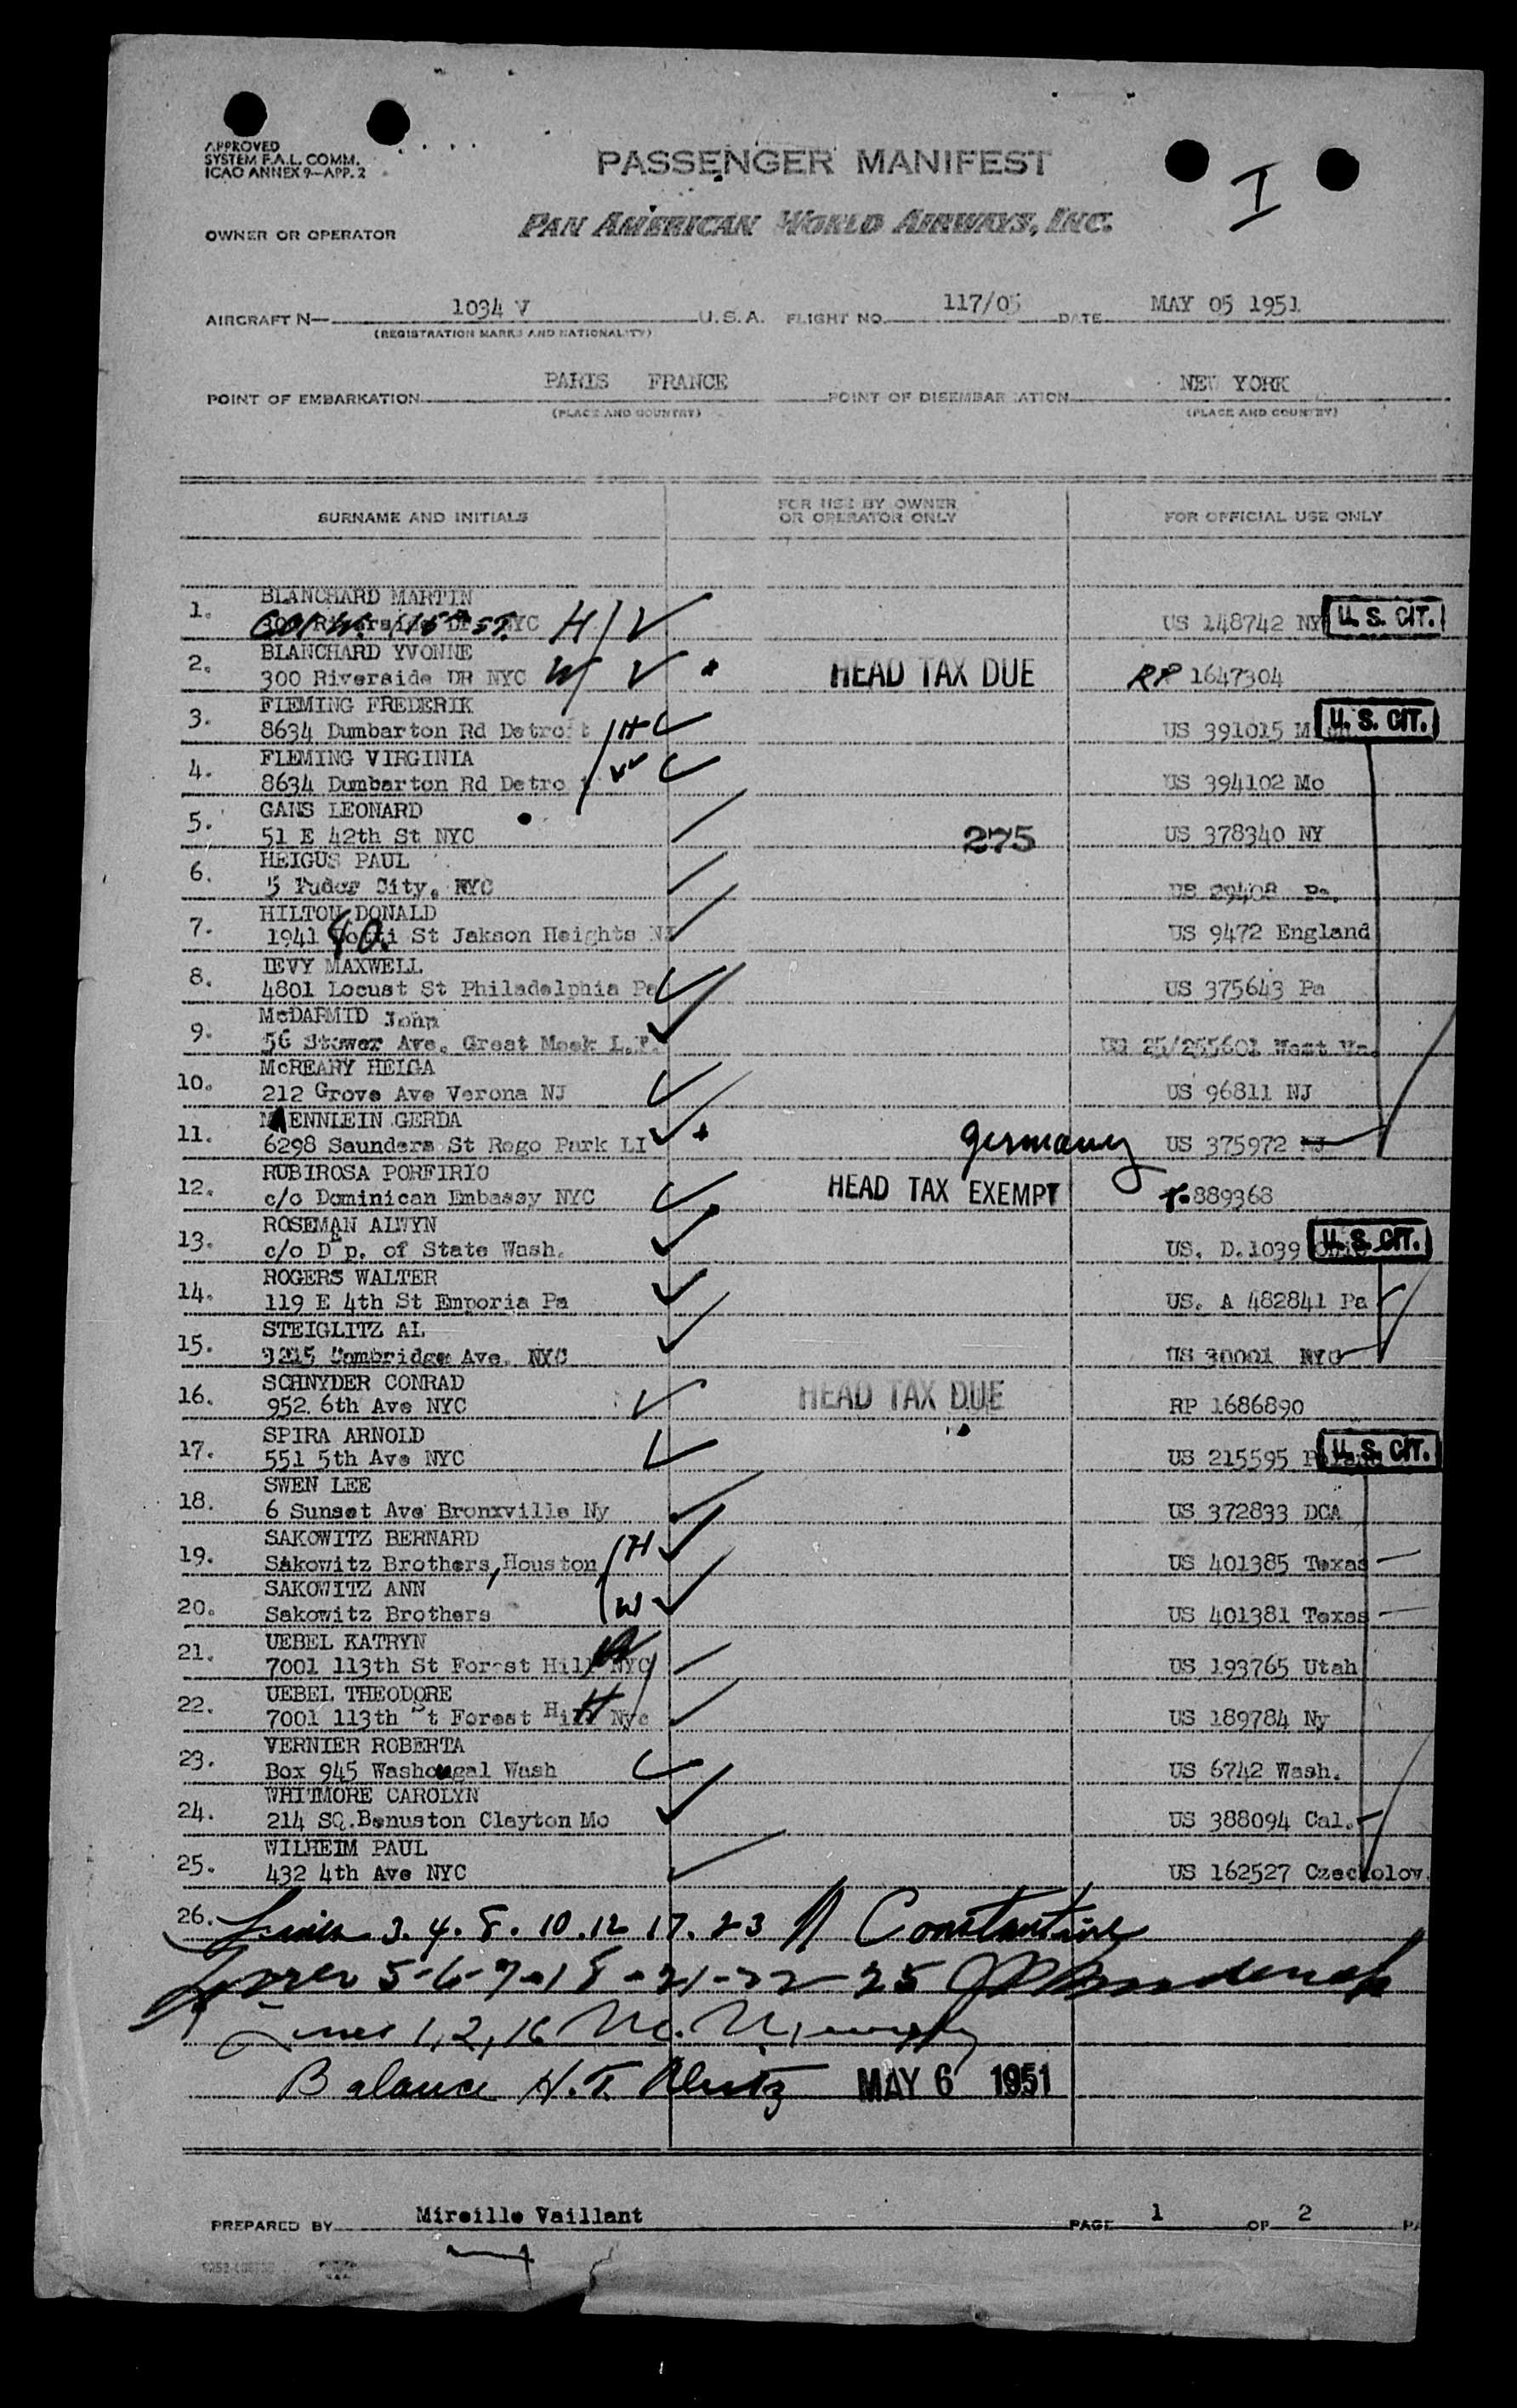 APPROVED
SYSTEM F.A.L. COMM.
ICAO ANNEX 9—APP. 2
PASSENGER MANIFEST
I
OWNER OR OPERATOR PAN AMERICAN WORLD AIRWAYS, INC.
AIRCRAFT N— 1034 V U.S.A. FLIGHT NO. 117/05 DATE MAY 05 1951
(REGISTRATION MARKS AND NATIONALITY)
POINT OF EMBARKATION PARIS FRANCE POINT OF DISEMBARKATION NEW YORK
(PLACE AND COUNTRY) (PLACE AND COUNTRY)
SURNAME AND INITIALS FOR USE BY OWNER OR OPERATOR ONLY FOR OFFICIAL USE ONLY
1. BLANCHARD MARTIN
601 W. 115th ST. NYC H US 148742 NY U. S. CIT.
2. BLANCHARD YVONNE
300 Riverside DR NYC W HEAD TAX DUE RP 1647304
3. FLEMING FREDERIK
8634 Dumbarton Rd Detroit H US 391015 U. S. CIT.
4. FLEMING VIRGINIA
8634 Dumbarton Rd Detro W US 394102 Mo
5. GANS LEONARD
51 E 42th St NYC 275 US 378340 NY
6. HEIGUS PAUL
5 Tudor City, NYC US 29408 Pa.
7. HILTON DONALD
1941 St Jakson Heights NJ US 9472 England
8. LEVY MAXWELL
4801 Locust St Philadelphia Pa US 375643 Pa
9. McDARMID John
56 Stower Ave. Great Neck L.I. US 25/255601 West Va.
10. McREARY HELGA
212 Grove Ave Verona NJ US 96811 NJ
11. MAENNLEIN GERDA
6298 Saunders St Rego Park LI Germany US 375972 NJ
12. RUBIROSA PORFIRIO
c/o Dominican Embassy NYC HEAD TAX EXEMPT 889368
13. ROSEMAN ALWYN
c/o Dep. of State Wash. US. D.1039 U. S. CIT.
14. ROGERS WALTER
119 E 4th St Emporia Pa US. A 482841 Pa
15. STEIGLITZ AL
3215 Cambridge Ave. NYC US 30001 NYC
16. SCHNYDER CONRAD
952 6th Ave NYC HEAD TAX DUE RP 1686890
17. SPIRA ARNOLD
551 5th Ave NYC US 215595 U. S. CIT.
18. SWEN LEE
6 Sunset Ave Bronxville Ny US 372833 DCA
19. SAKOWITZ BERNARD
Sakowitz Brothers, Houston H US 401385 Texas
20. SAKOWITZ ANN
Sakowitz Brothers W US 401381 Texas
21. UEBEL KATRYN
7001 113th St Forest Hill NYC W US 193765 Utah
22. UEBEL THEODORE
7001 113th St Forest Hill Nyc H US 189784 Ny
23. VERNIER ROBERTA
Box 945 Washougal Wash US 6742 Wash.
24. WHITMORE CAROLYN
214 SQ.Benuston Clayton Mo US 388094 Cal.
25. WILHEIM PAUL
432 4th Ave NYC US 162527 Czeckolov.
26. Lines 3. 4. 8. 10. 12 17. 23 A Constantine
Lines 5-6-7-18-21-22-25
Lines 1, 2, 16
Balance H.T. MAY 6 1951
PREPARED BY Mireille Vaillant PAGE 1 OF 2